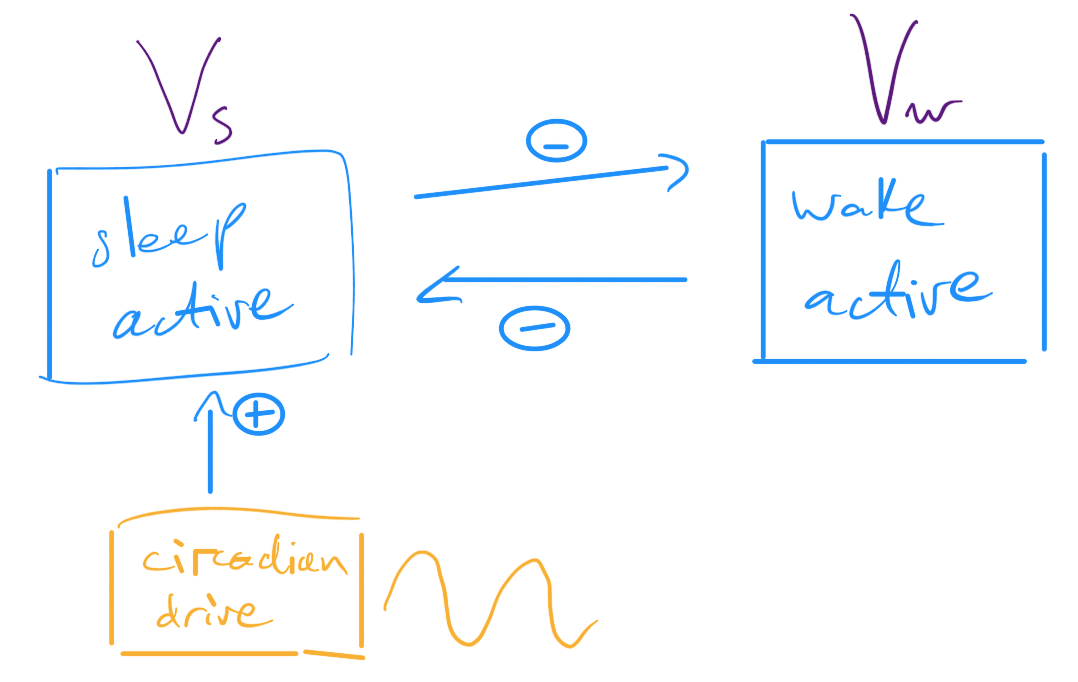 Vs
Vw
sleep
active
⊖
⊖
wake
active
⊕
circadian
drive